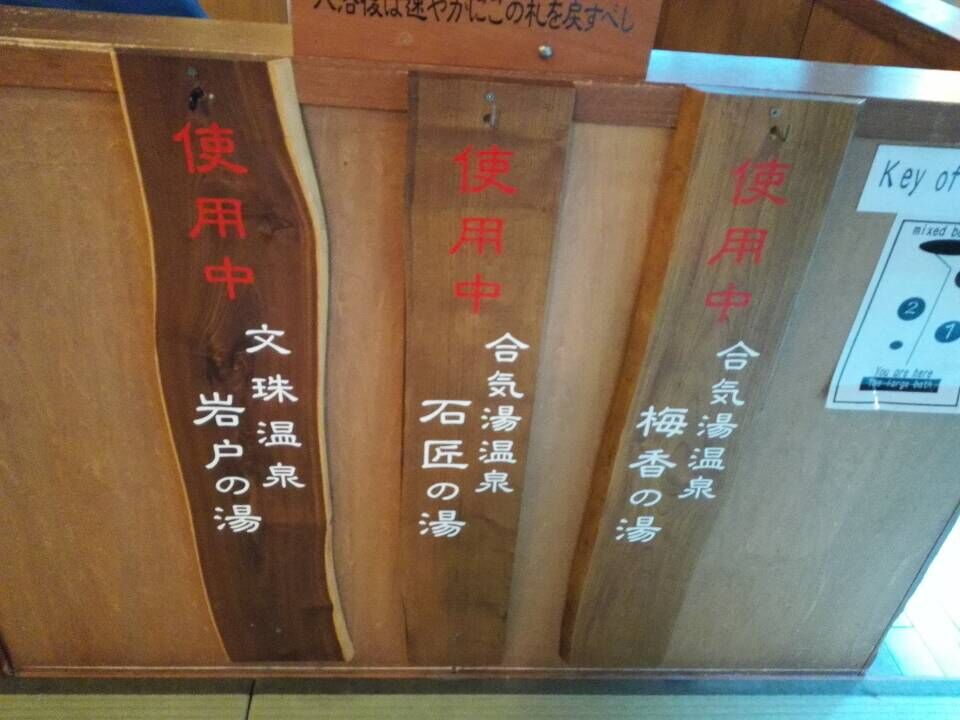 入浴後は速やかにこの札を戻すべし
使用中
文珠温泉
岩戸の湯
使用中
合気湯温泉
石匠の湯
使用中
合気湯温泉
梅香の湯
Key of
mixed
2
1
You are here
The large bath